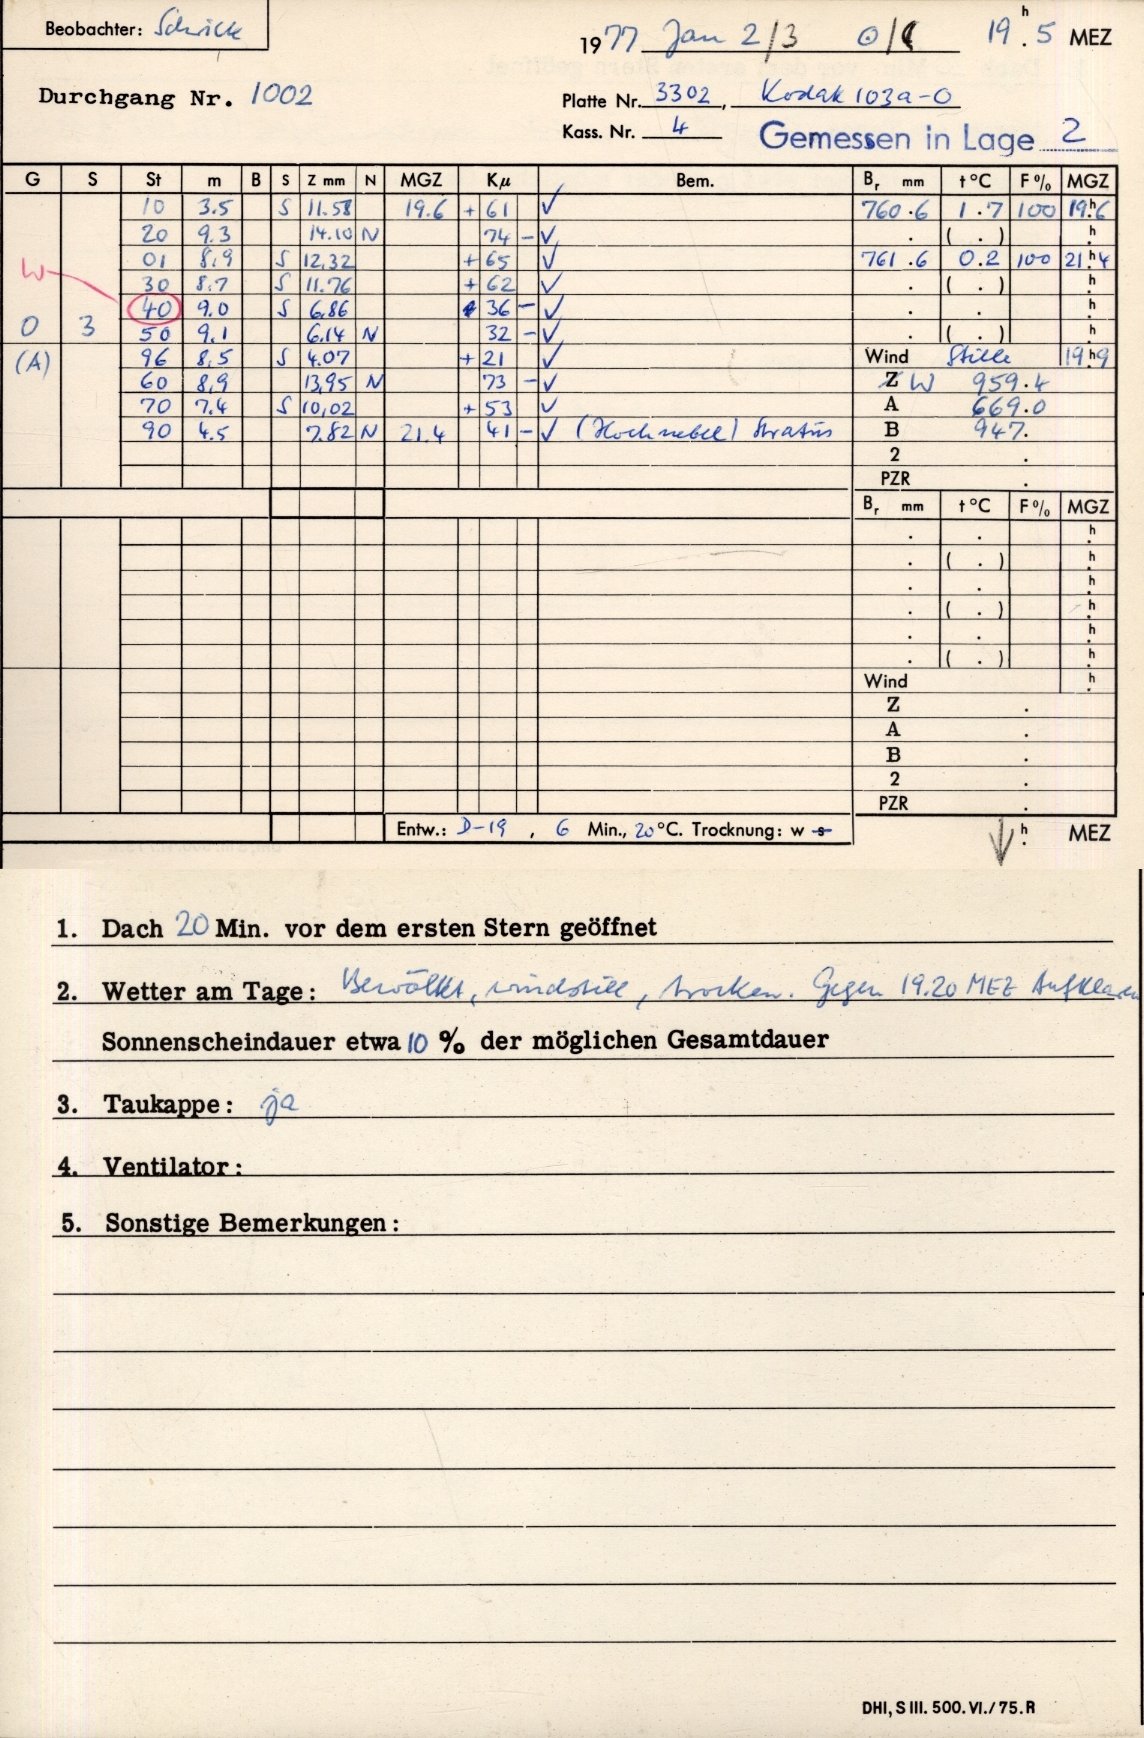 Beobachter: Schrick
1977 Jan 2/3 19h.5 MEZ
Durchgang Nr. 1002
Platte Nr. 3302, Kodak 103a-O
Kass. Nr. 4 Gemessen in Lage 2
G S St m B S Z mm N MGZ Kμ Bem. Br mm t °C F % MGZ
10 3.5 S 11.58 19.6 + 61 ✓ 760.6 1.7 100 19h.6
20 9.3 14.10 N 74 - ✓ . ( . ) h.
01 8.9 S 12.32 + 65 ✓ 761.6 0.2 100 21h.4
W 30 8.7 S 11.76 + 62 ✓ . ( . ) h.
40 9.0 S 6.86 36 - ✓ . . h.
0 3 50 9.1 6.14 N 32 - ✓ . ( . ) h.
(A) 96 8.5 S 4.07 + 21 ✓ Wind Stille 19h.9
60 8.9 13.95 N 73 - ✓ Z W 959.4
70 7.4 S 10.02 + 53 ✓ A 669.0
90 4.5 7.82 N 21.4 41 - ✓ (Hochnebel) Stratus B 947.
2 .
PZR .
Br mm t °C F % MGZ
. . h.
. ( . ) h.
. . h.
. ( . ) h.
. . h.
. ( . ) h.
Wind h.
Z .
A .
B .
2 .
PZR .
Entw.: D-19, 6 Min., 20 °C. Trocknung: w s h. MEZ
1. Dach 20 Min. vor dem ersten Stern geöffnet
2. Wetter am Tage: Bewölkt, windstill, trocken. Gegen 19.20 MEZ Aufklaren
Sonnenscheindauer etwa 10 % der möglichen Gesamtdauer
3. Taukappe: ja
4. Ventilator:
5. Sonstige Bemerkungen:
DHI, S III. 500. VI./75. R